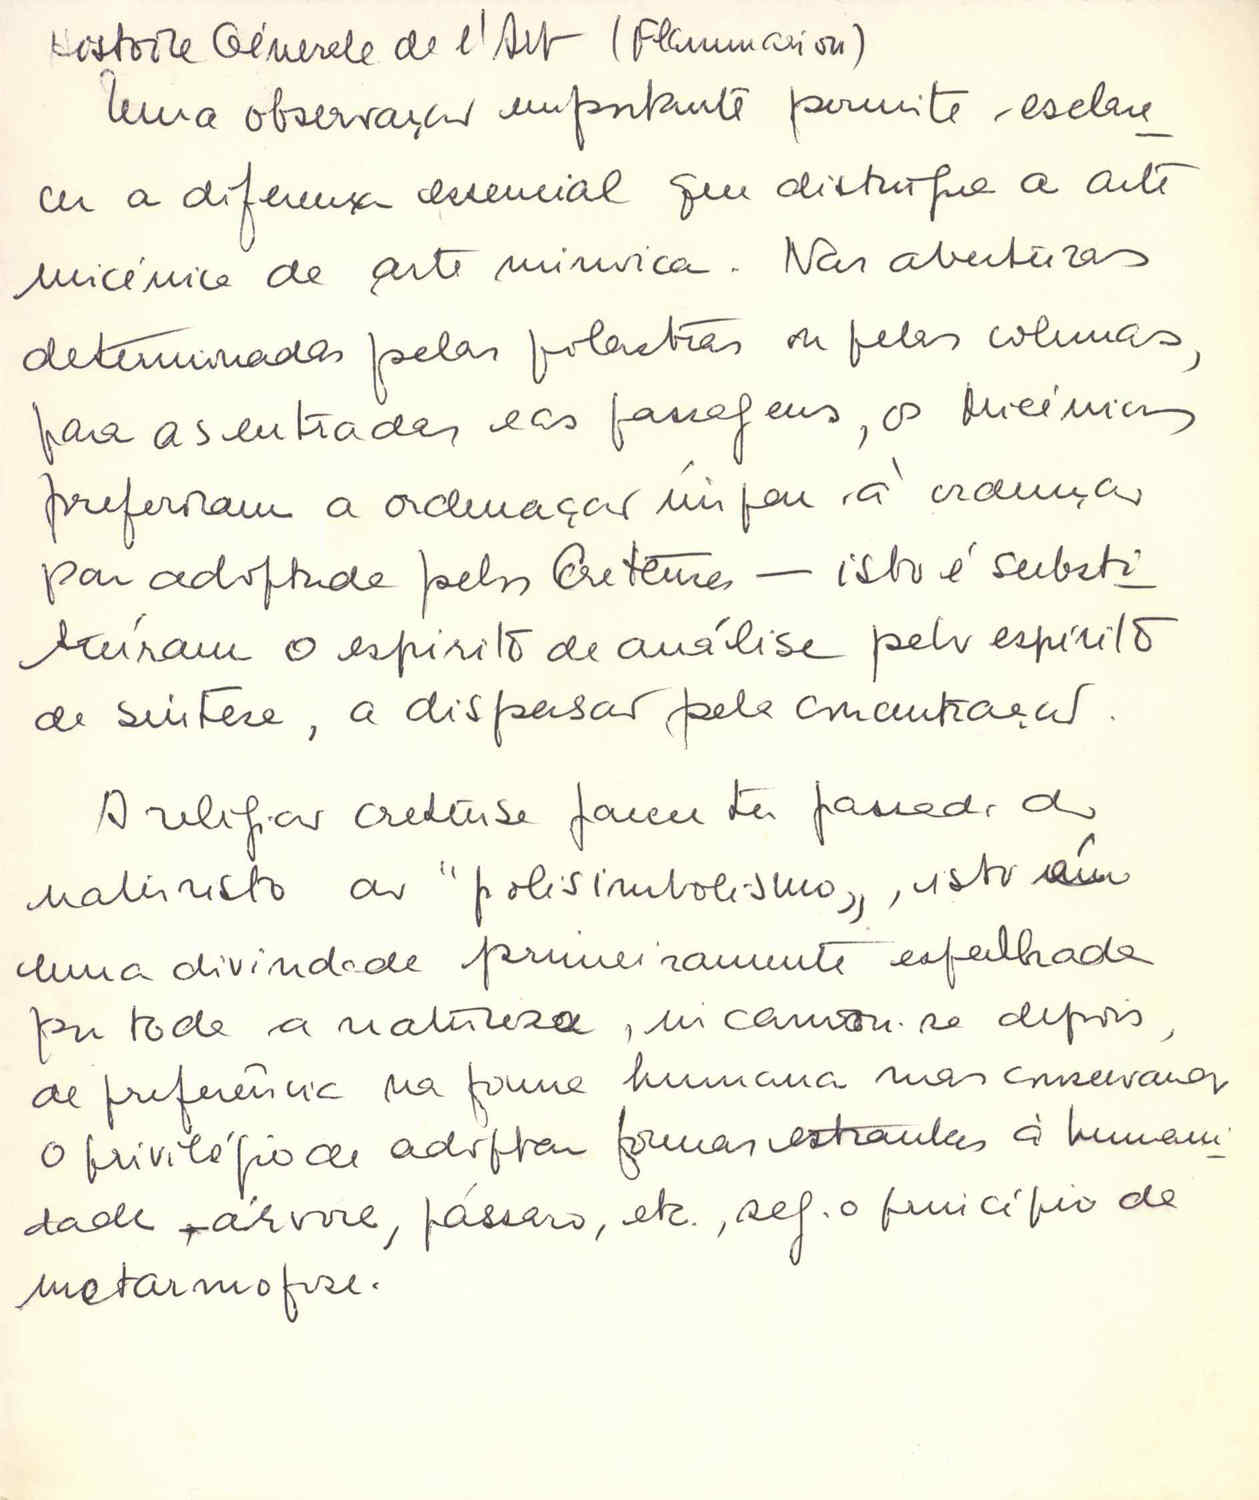 Histoire Générale de l'Art (Flammarion)
Uma observação importante permite esclare
cer a diferença essencial que distingue a arte
micénica de arte minoica. Nas aberturas
determinadas pelas pilastras ou pelas colunas,
para as entradas e as passagens, os Micénicos
preferiram a ordenação ímpar à ordenação
par adoptada pelos Cretenses — isto é substi
tuíram o espírito de análise pelo espírito
de síntese, a dispersão pela concentração.
A religião cretense parece ter passado do
naturismo ao "polisimbolismo", isto é
uma divindade primeiramente espalhada
por toda a natureza, incarnou-se depois,
de preferência na forma humana mas conservando
o privilégio de adoptar formas estranhas à humani
dade, árvore, pássaro, etc., seg. o princípio de
metarmofose.